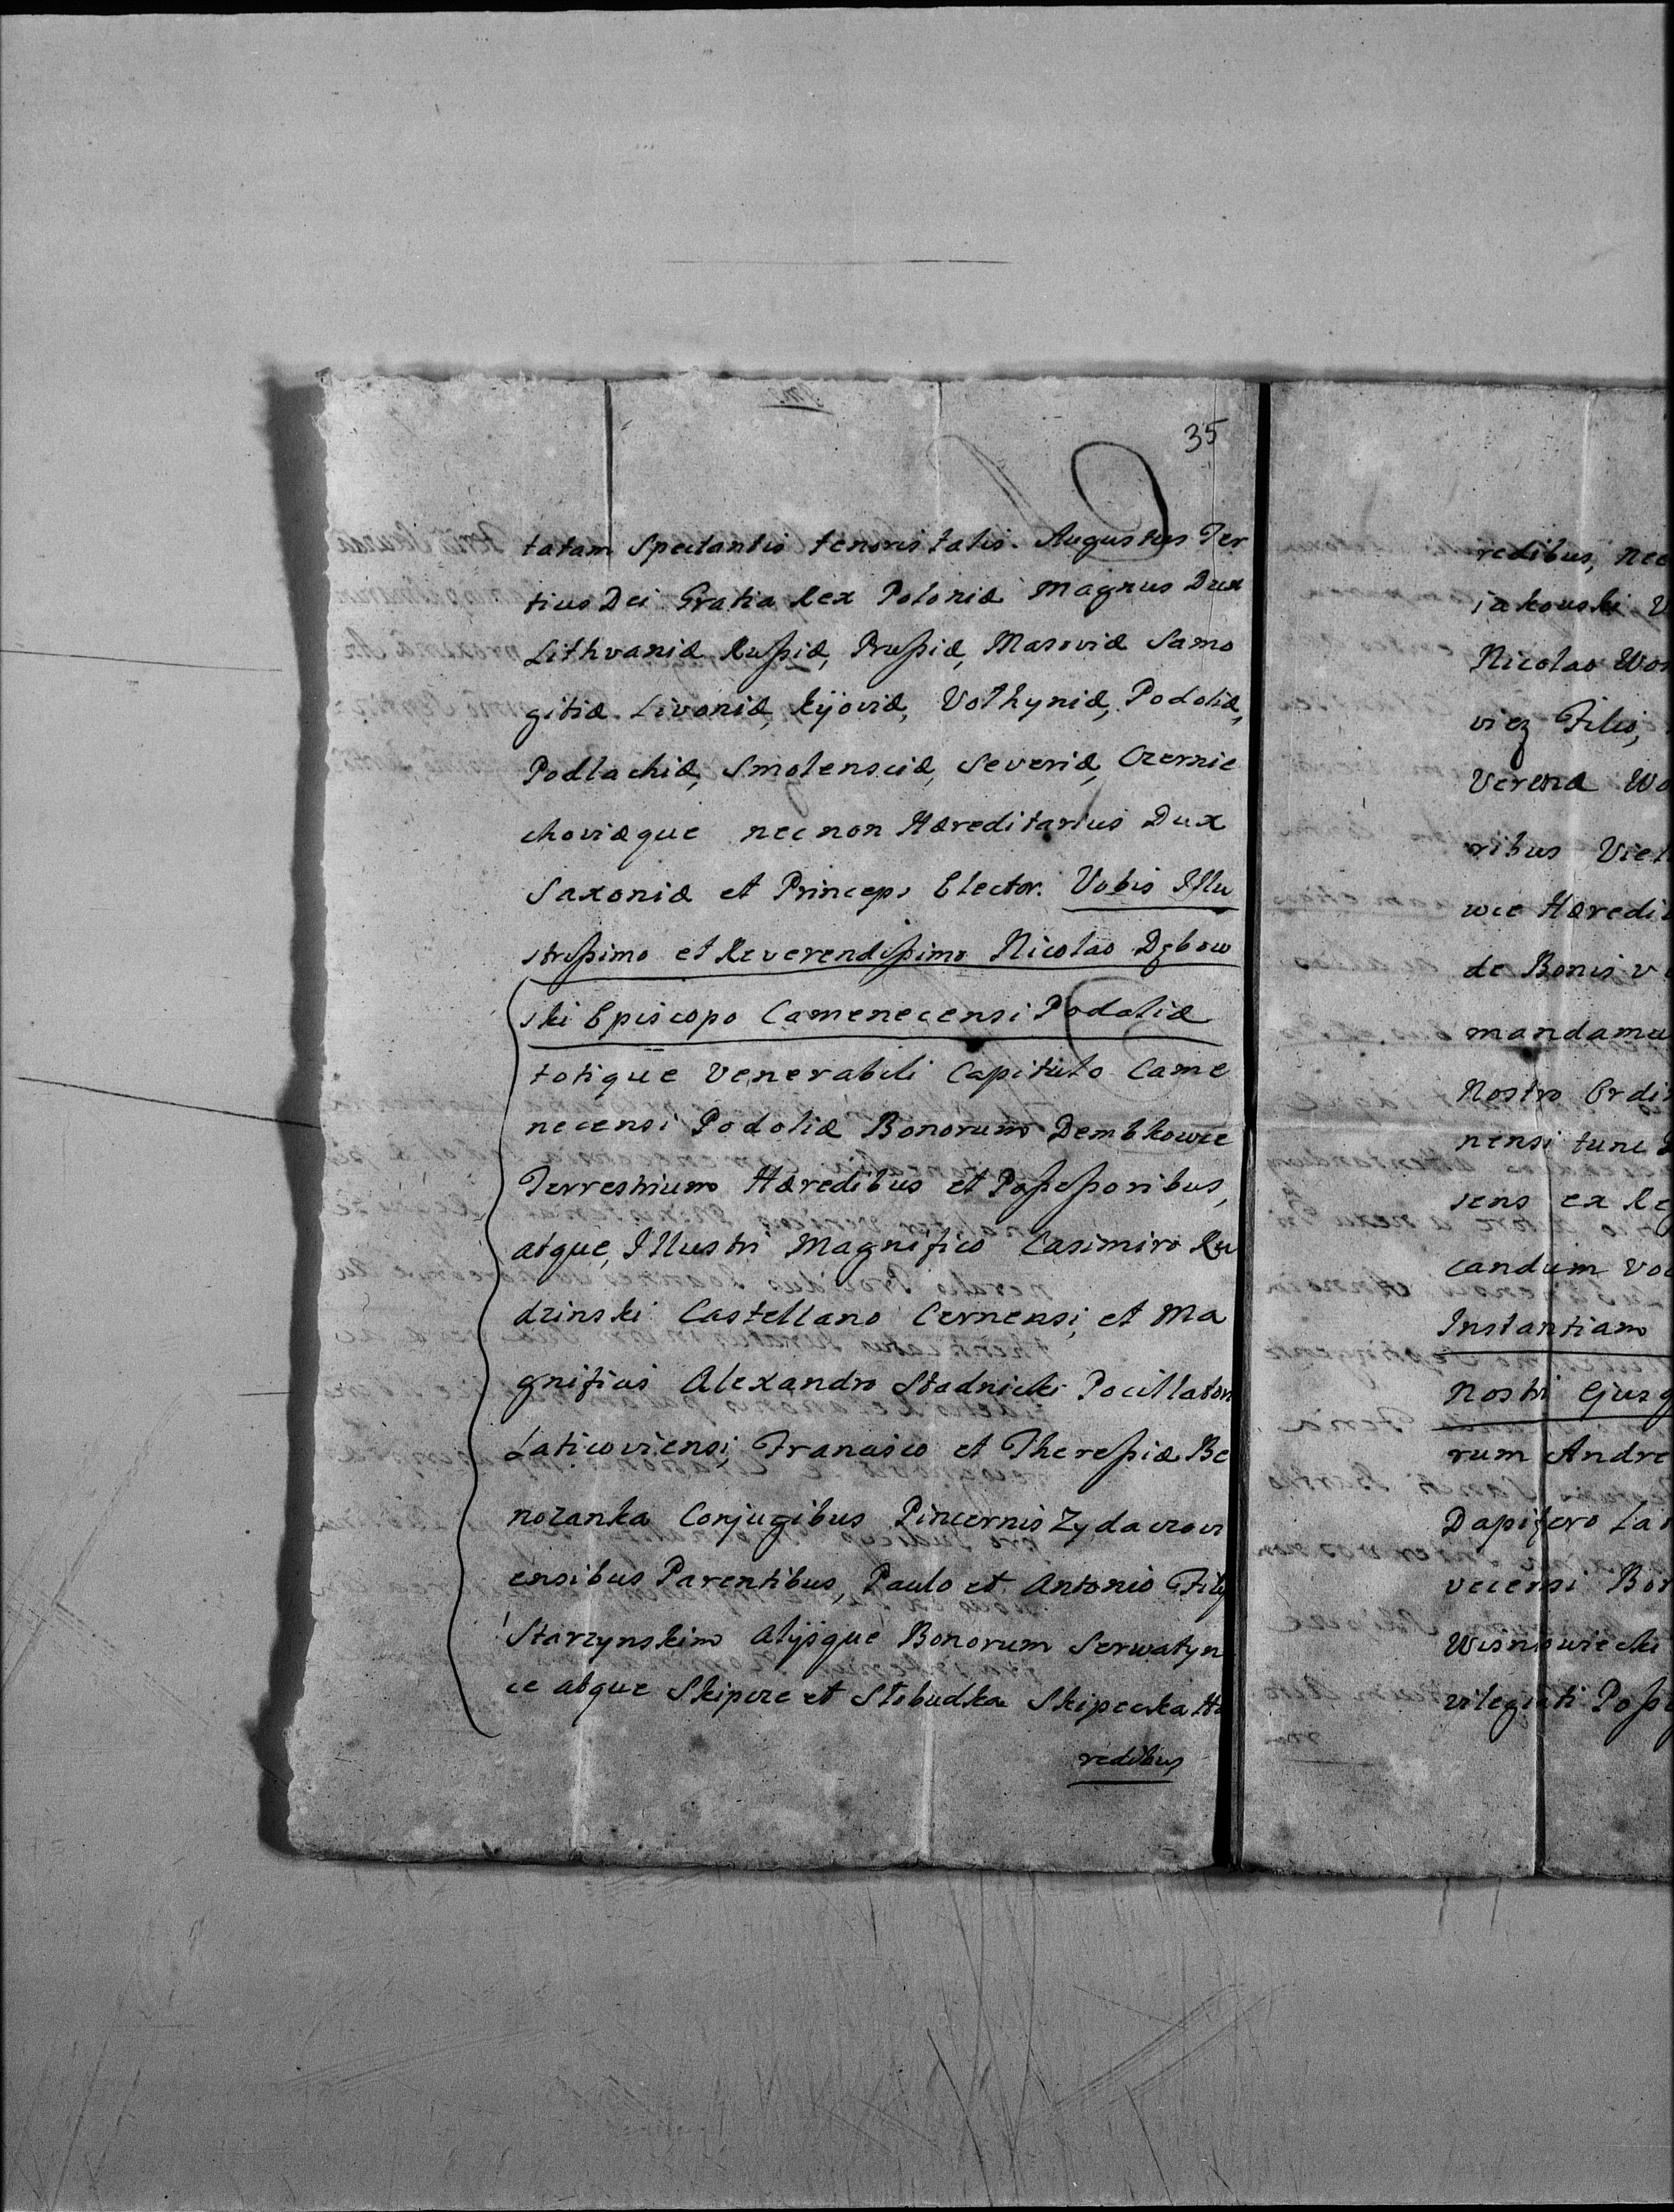 35
tatam Spectantis tenoris talis. Augustus Ter
tius Dei Gratia Rex Poloniæ Magnus Dux
Lithvaniæ Rußiæ, Prußiæ, Masoviæ Samo
gitiæ Livoniæ, Kijoviæ, Volhyniæ, Podoliæ,
Podlachiæ, Smolensciæ, Severiæ, Czernie
choviæque nec non Hæreditarius Dux
Saxoniæ et Princeps Elector. Vobis Illu
strißimo et Reverendißimo Nicolao Dębow
ski Episcopo Camenecensi Podoliæ
totique Venerabili Capitulo Came
necensi Podoliæ Bonorum Dembkowce
Terrestrium Hæredibus et Poßeßoribus,
atque, Illustri Magnifico Casimiro Ru
dzinski Castellano Cernensi, et Ma
gnificis Alexandro Stadnicki Pocillatori
Laticoviensi, Francisco et Thereßiæ Be
nozanka Conjugibus Pincernis Zydaczovi
ensibus Parentibus, Paulo et Antonio Filij
Starzynskim alijsque Bonorum Serwatyn
ce atque Skipcze et Slobudka Skipecka Hæ
redibus
redibus, nec
iakouski
Nicolao
viez Filio,
Verena
ribus
wce Hæredi
de Bonis
mandamu
Nostro Ordi
nensi tunc
sens ex Re
candum
Instantiam
Nostri Ejusq
rum Andre
Dapifero La
vecensi Bo
Wisniowiecki
vilegiati Poße